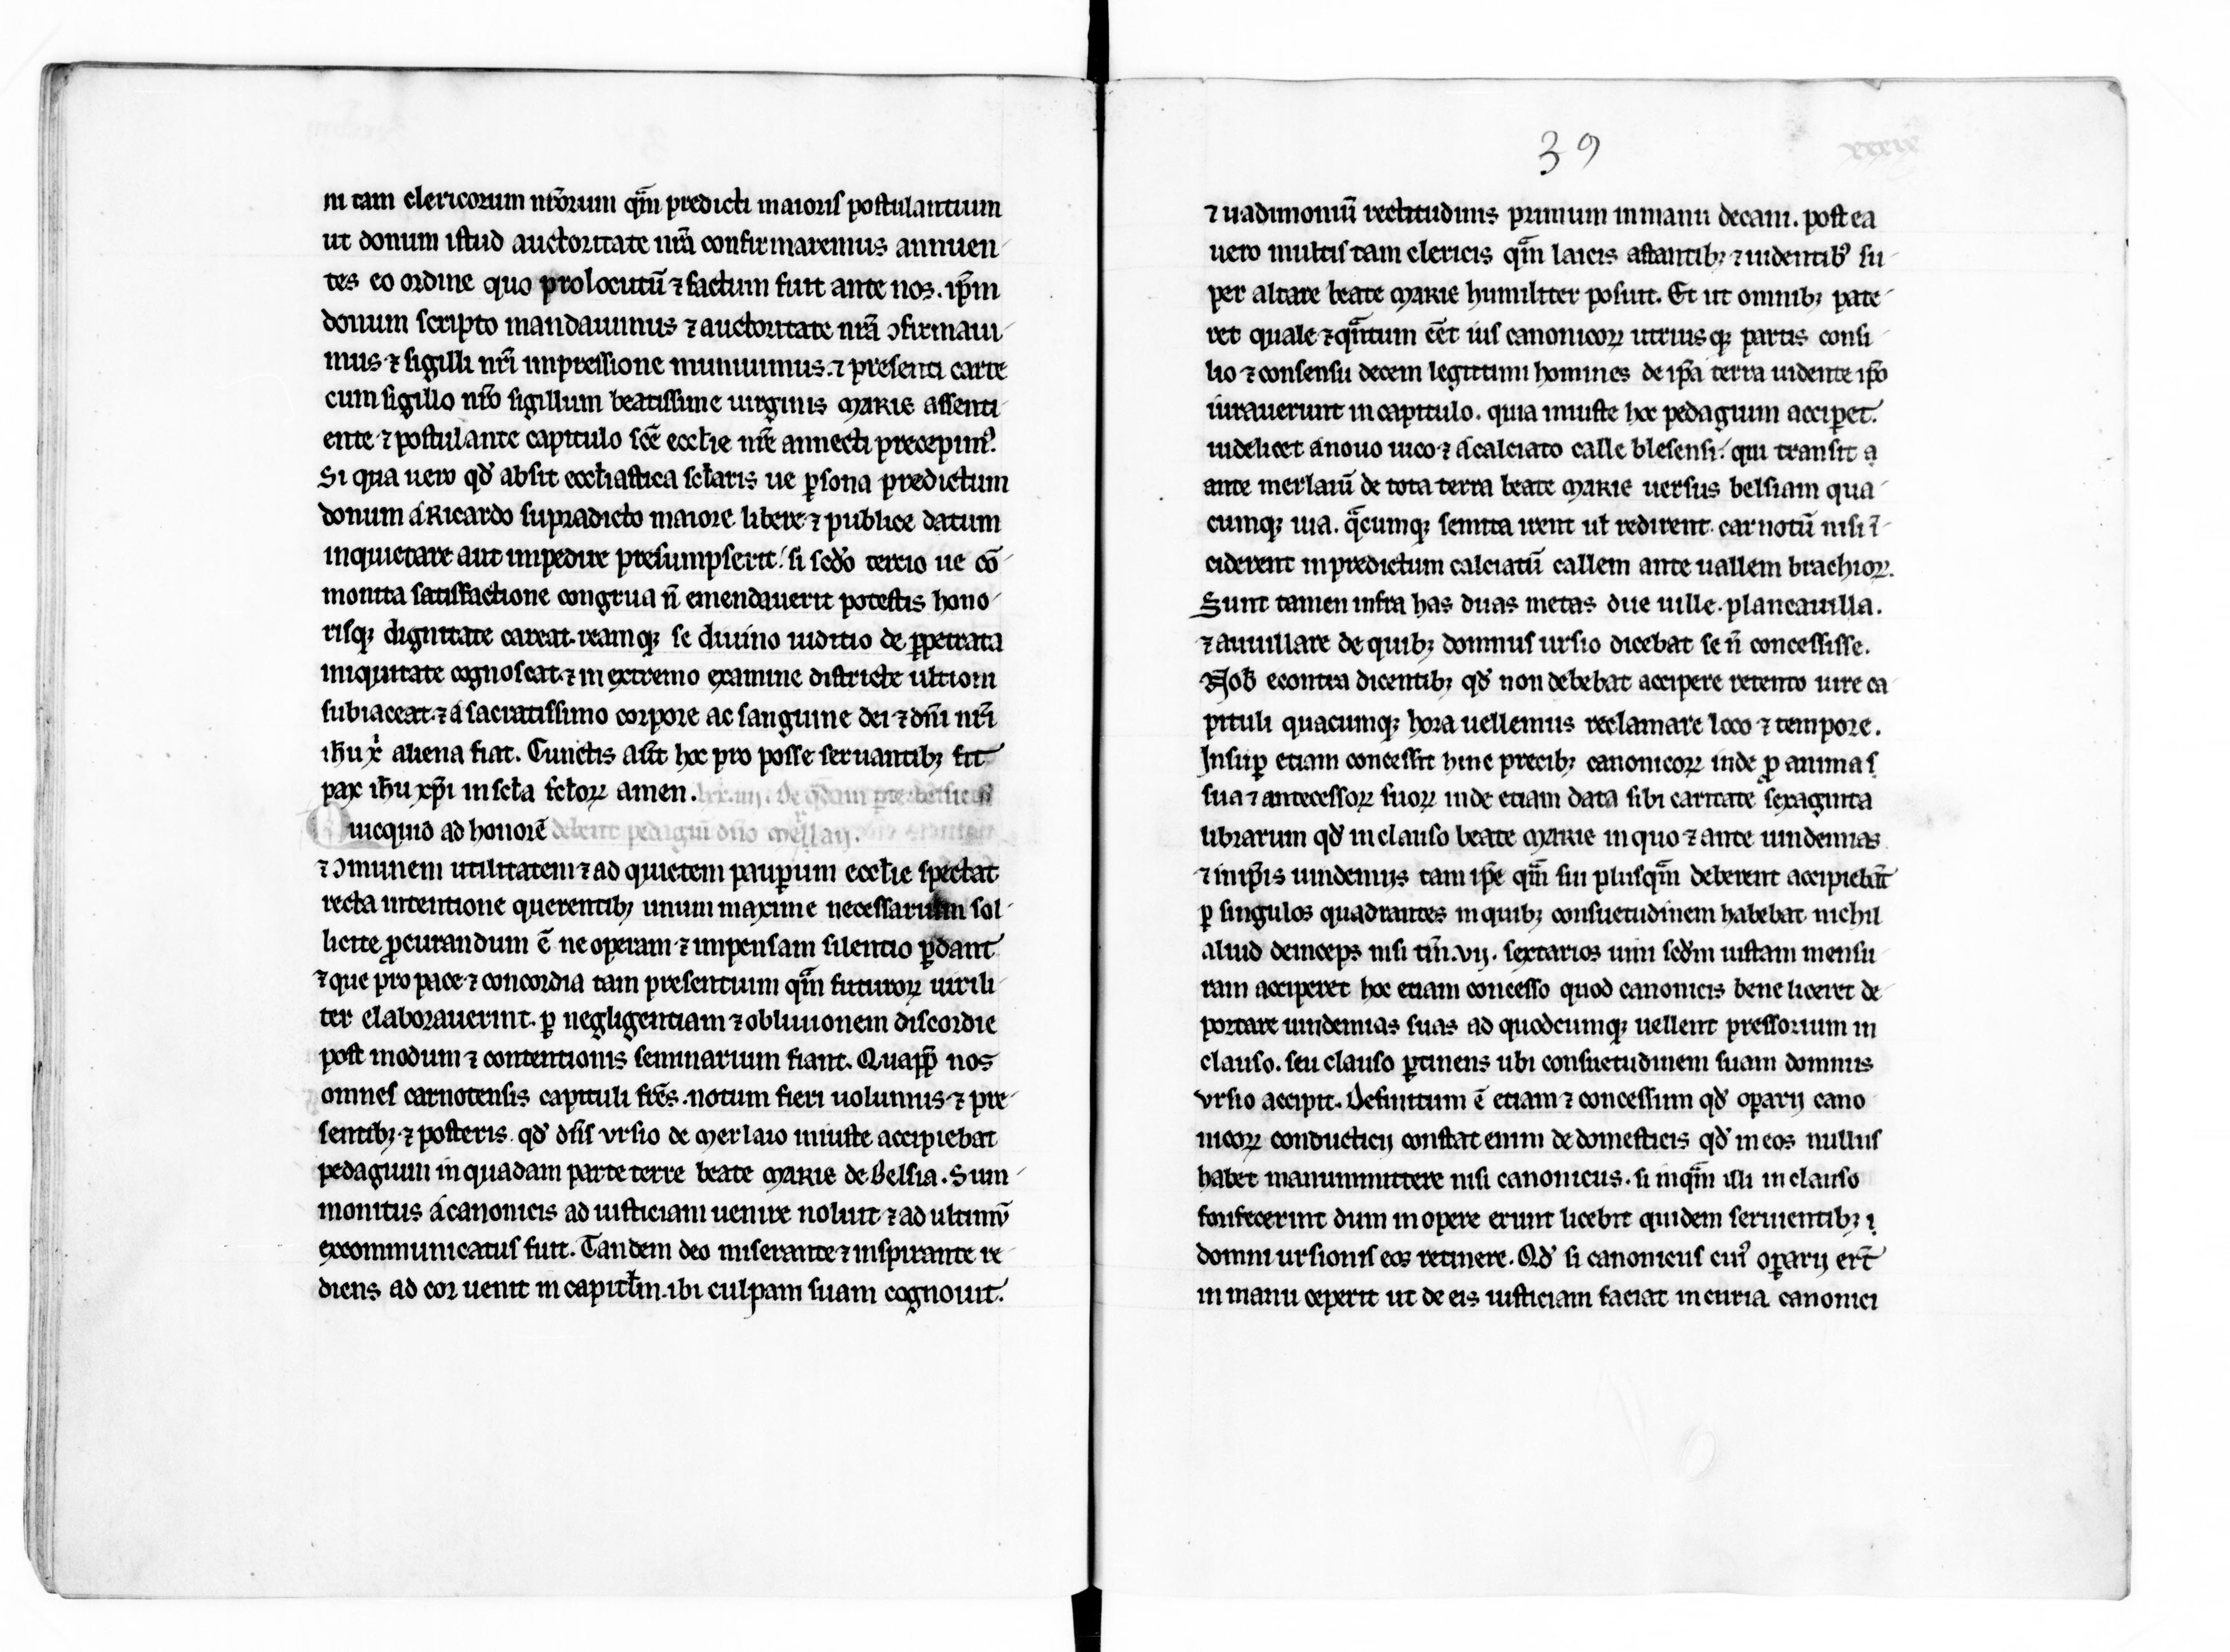 ni tam clericorum nr̃orum qm̃ predicti maioris postulantium
ut donum istud auctoritate nr̃a confirmaremus annuen-
tes eo ordine quo prolocutũ ⁊ factum fuit ante nos. ip̃m
donum scripto mandauimus ⁊ auctoritate nr̃a ꝯfirmaui-
mus ⁊ sigilli nr̃i impressione muniuimus. ⁊ presenti carte
cum sigillo nr̃o sigillum beatissime uirginis MARIE assenti-
ente ⁊ postulante capitulo sc̃e eccl̃ie nr̃e annecti precepimꝰ.
Si qua uero qđ absit eccl̃iastica sc̃laris ue ꝑsona predictum
donum á Ricardo supradicto maiore libere ⁊ publice datum
inquietare aut impedire presumpserit. si sc̃do tercio ue cõ-
monita satisfactione congrua ñ emendauerit potestatis hono-
risqꝫ dignitate careat. reamqꝫ se diuino iudicio de ꝑpetrata
iniquitate cognoscat. ⁊ in extremo examine districte ultioni
subiaceat. ⁊ á sacratissimo corpore ac sanguine dei ⁊ dñi nr̃i
ih̃u xp̃i aliena fiat. Cunctis aũt hoc pro posse seruantibꝫ sit
pax ih̃u xp̃i in sc̃la sc̃loꝝ amen. lxx.iiij. De q̃dam parte belsie
Quicquid ad honorẽ debent pedagiũ dño Merlaii.
⁊ ꝯmunem utilitatem ⁊ ad quietem pauꝑum eccl̃ie spectat
recta intentione querentibꝫ unum maxime necessarium sol-
licite ꝓcurandum ẽ ne operam ⁊ impensam silentio ꝑdant
⁊ que pro pace ⁊ concordia tam presentium qm̃ futuroꝝ uirili-
ter elaborauerint. ꝑ negligentiam ⁊ obliuionem discordie
post modum ⁊ contentionis seminarium fiant. Quapꝓ nos
omnes carnotensis capituli fr̃es. notum fieri uolumus ⁊ pre-
sentibꝫ ⁊ posteris. qđ dñs vrsio de Merlaio iniuste accipiebat
pedagium in quadam parte terre beate MARIE de Belsia. Sum-
monitus á canonicis ad iusticiam uenire noluit ⁊ ad ultimũ
excommunicatus fuit. Tandem deo miserante ⁊ inspirante re-
diens ad cor uenit in capitl̃m. ibi culpam suam cognouit.
39
⁊ uadimoniũ rectitudinis primum in manu decani. post ea
uero multis tam clericis qm̃ laicis astantibꝫ ⁊ uidentibꝰ su-
per altare beate MARIE humiliter posuit. Et ut omnibꝫ pate-
ret quale ⁊ qñtum eẽt ius canonicoꝝ utriusqꝫ partis consi-
lio ⁊ consensu decem legitimi homines de ip̃a terra uidente ip̃o
iurauerunt in capitulo. quia iniuste hoc pedagium acciꝑet.
uidelicet á nouo uico ⁊ á calciato calle blesensi. qui transit a
ante merlaiũ de tota terra beate MARIE uersus belsiam qua-
cumqꝫ uia. q̃cumqꝫ semita irent ul̃ redirent. carnotũ nisi ĩ-
ciderent in predictum calciatũ callem ante uallem brachioꝝ.
Sunt tamen infra has duas metas due uille. plancauilla.
⁊ auuillare de quibꝫ domnus ursio dicebat se ñ concessisse.
Nob̃ econtra dicentibꝫ qđ non debebat accipere retento iure ca-
pituli quacumqꝫ hora uellemus reclamare loco ⁊ tempore.
Insuꝑ etiam concessit hinc precibꝫ canonicoꝝ inde ꝓ anima s
sua ⁊ antecessoꝝ suoꝝ inde etiam data sibi caritate sexaginta
librarum qđ in clauso beate MARIE in quo ⁊ ante uindemias
⁊ in ip̃is uindemiis tam ip̃e qm̃ sui plusqm̃ deberent accipiebãt
ꝑ singulos quadrantes in quibꝫ consuetudinem habebat. nichil
aliud deinceps nisi tm̃ .vij. sextarios uini sc̃dm iustam mensu-
ram acciperet hoc etiam concesso quod canonicis bene liceret de-
portare uindemias suas ad quodcumqꝫ uellent pressorium in
clauso. seu clauso ꝑtinens ubi consuetudinem suam domnus
vrsio accipit. Definitum ẽ etiam ⁊ concessum qđ oꝑarij cano-
nicoꝝ conducticij constat enim de domesticis qđ in eos nullus
habet manum mittere nisi canonicus. si inqm̃ illi in clauso
forifecerint dum in opere erunt licebit quidem seruientibꝫ i
domni ursionis eos retinere. Qđ si canonicus cuiꝰ oꝑarij ert̃
in manu ceperit ut de eis iusticiam faciat in curia canonici